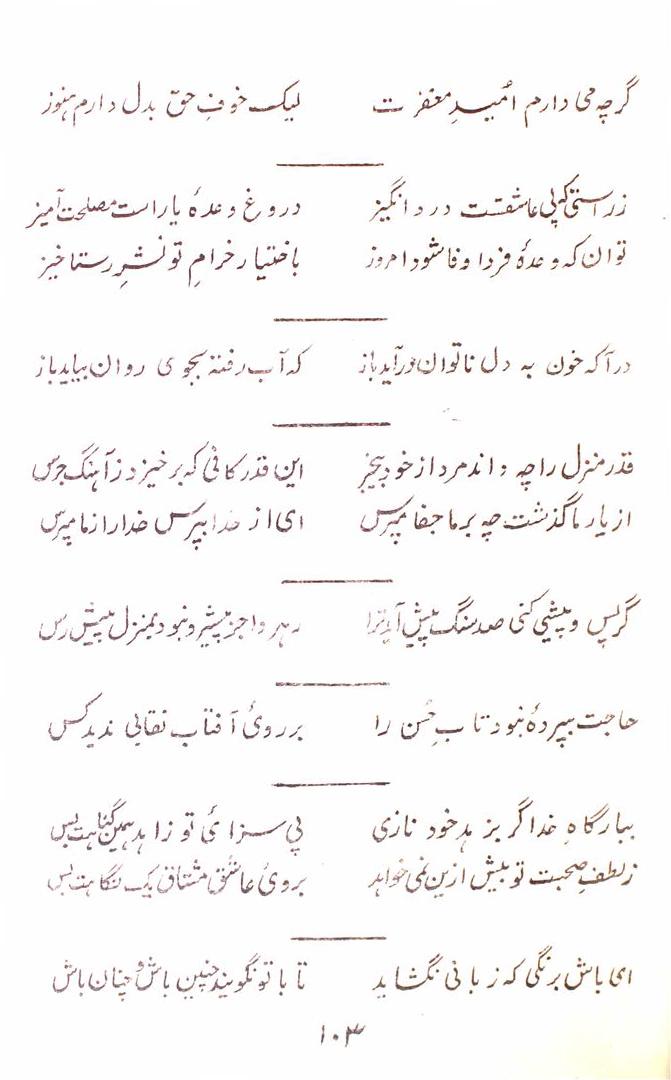 گرچه می دارم امیدِ مغفرت لیک خوفِ حق بدل دارم هنوز
ز راستی که پی عاشقست درد انگیز دروغ وعدهٔ یار است مصلحت آمیز
توان که وعدهٔ فردا وفا شود امروز باختیار خرامِ تو نشرِ رستاخیز
در آ که خون به دل ناتوان در آید باز که آب رفته بجوی روان بیاید باز
قدر منزل را چه داند مرد از خود بیخبر این قدر کافی که برخیزد ز آهنگ جرس
از یار ما گذشت چه بر ما جفا مپرس ای از خدا بپرس خدا را ز ما مپرس
گر پس و پیشی کنی صد سنگ پیش آید ترا رهرو اجز پیشرو نبود بمنزل پیش رس
حاجت بپردهٔ نبود تابِ حُسن را بر رویٔ آفتاب نقابی ندید کس
ببارگاهِ خدا گر بزهد خود نازی پی سزایٔ تو زاهد همین گناهت بس
ز لطفِ صحبت تو بیش ازین نمی خواهد برویٔ عاشق مشتاق یک نگاهت بس
ای باش برنگی که زبانی نگشاید تا با تو نگویند چنین باش و چنان باش
۱۰۳